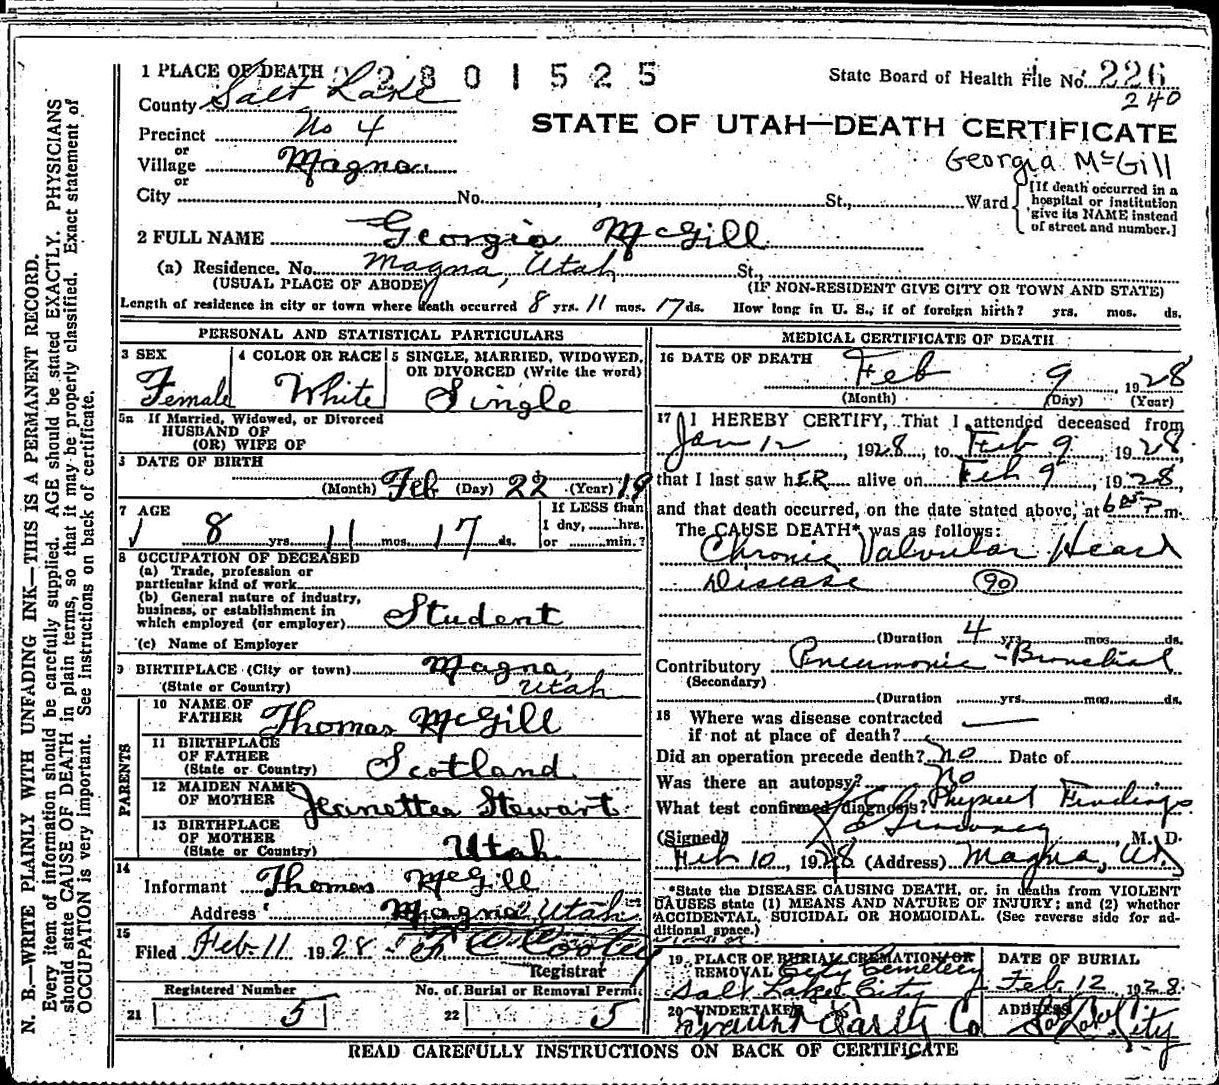 1 PLACE OF DEATH 2801525
State Board of Health File No. 226
240
County Salt Lake
STATE OF UTAH—DEATH CERTIFICATE
Precinct No 4
or
Village Magna
Georgia McGill
or
City No. St., Ward
[If death occurred in a
hospital or institution
give its NAME instead
of street and number.]
2 FULL NAME Georgia McGill
(a) Residence. No. Magna, Utah St.,
(USUAL PLACE OF ABODE) (IF NON-RESIDENT GIVE CITY OR TOWN AND STATE)
Length of residence in city or town where death occurred 8 yrs. 11 mos. 17 ds. How long in U. S., if of foreign birth? yrs. mos. ds.
PERSONAL AND STATISTICAL PARTICULARS
3 SEX
Female
4 COLOR OR RACE
White
5 SINGLE, MARRIED, WIDOWED,
OR DIVORCED (Write the word)
Single
5a If Married, Widowed, or Divorced
HUSBAND OF
(OR) WIFE OF
DATE OF BIRTH
(Month) Feb (Day) 22 (Year) 19
7 AGE
8 yrs. 11 mos. 17 ds.
If LESS than
1 day, hrs.
or min.?
8 OCCUPATION OF DECEASED
(a) Trade, profession or
particular kind of work
(b) General nature of industry,
business, or establishment in
which employed (or employer) Student
(c) Name of Employer
9 BIRTHPLACE (City or town) Magna,
(State or Country) Utah
PARENTS
10 NAME OF
FATHER Thomas McGill
11 BIRTHPLACE
OF FATHER
(State or Country) Scotland
12 MAIDEN NAME
OF MOTHER Jeanetta Stewart
13 BIRTHPLACE
OF MOTHER
(State or Country) Utah
14
Informant Thomas McGill
Address Magna Utah
15
Filed Feb. 11 1928
Registrar
Registered Number No. of Burial or Removal Permit
21 5 22 5
MEDICAL CERTIFICATE OF DEATH
16 DATE OF DEATH
Feb 9 1928
(Month) (Day) (Year)
17 I HEREBY CERTIFY, That I attended deceased from
Jan 12, 1928, to Feb 9, 1928,
that I last saw hER alive on Feb 9, 1928,
and that death occurred, on the date stated above, at P m.
The CAUSE DEATH* was as follows:
Chronic Valvular Heart
Disease 90
(Duration 4 yrs. mos. ds.
Contributory Pneumonia - Bronchial
(Secondary)
(Duration yrs. mos. ds.
18 Where was disease contracted
if not at place of death?
Did an operation precede death? no Date of
Was there an autopsy? No
What test confirmed diagnosis? Physical Findings
(Signed) M. D.
Feb 10, 1928 (Address) Magna, Ut
*State the DISEASE CAUSING DEATH, or, in deaths from VIOLENT
CAUSES state (1) MEANS AND NATURE OF INJURY; and (2) whether
ACCIDENTAL, SUICIDAL OR HOMICIDAL. (See reverse side for ad-
ditional space.)
19 PLACE OF BURIAL, CREMATION OR
REMOVAL City Cemetery
Salt Lake City
DATE OF BURIAL
Feb 12 1928
20 UNDERTAKER
Co
ADDRESS
Salt Lake City
READ CAREFULLY INSTRUCTIONS ON BACK OF CERTIFICATE
N. B.—WRITE PLAINLY WITH UNFADING INK—THIS IS A PERMANENT RECORD.
Every item of information should be carefully supplied. AGE should be stated EXACTLY. PHYSICIANS
should state CAUSE OF DEATH in plain terms, so that it may be properly classified. Exact statement of
OCCUPATION is very important. See instructions on back of certificate.